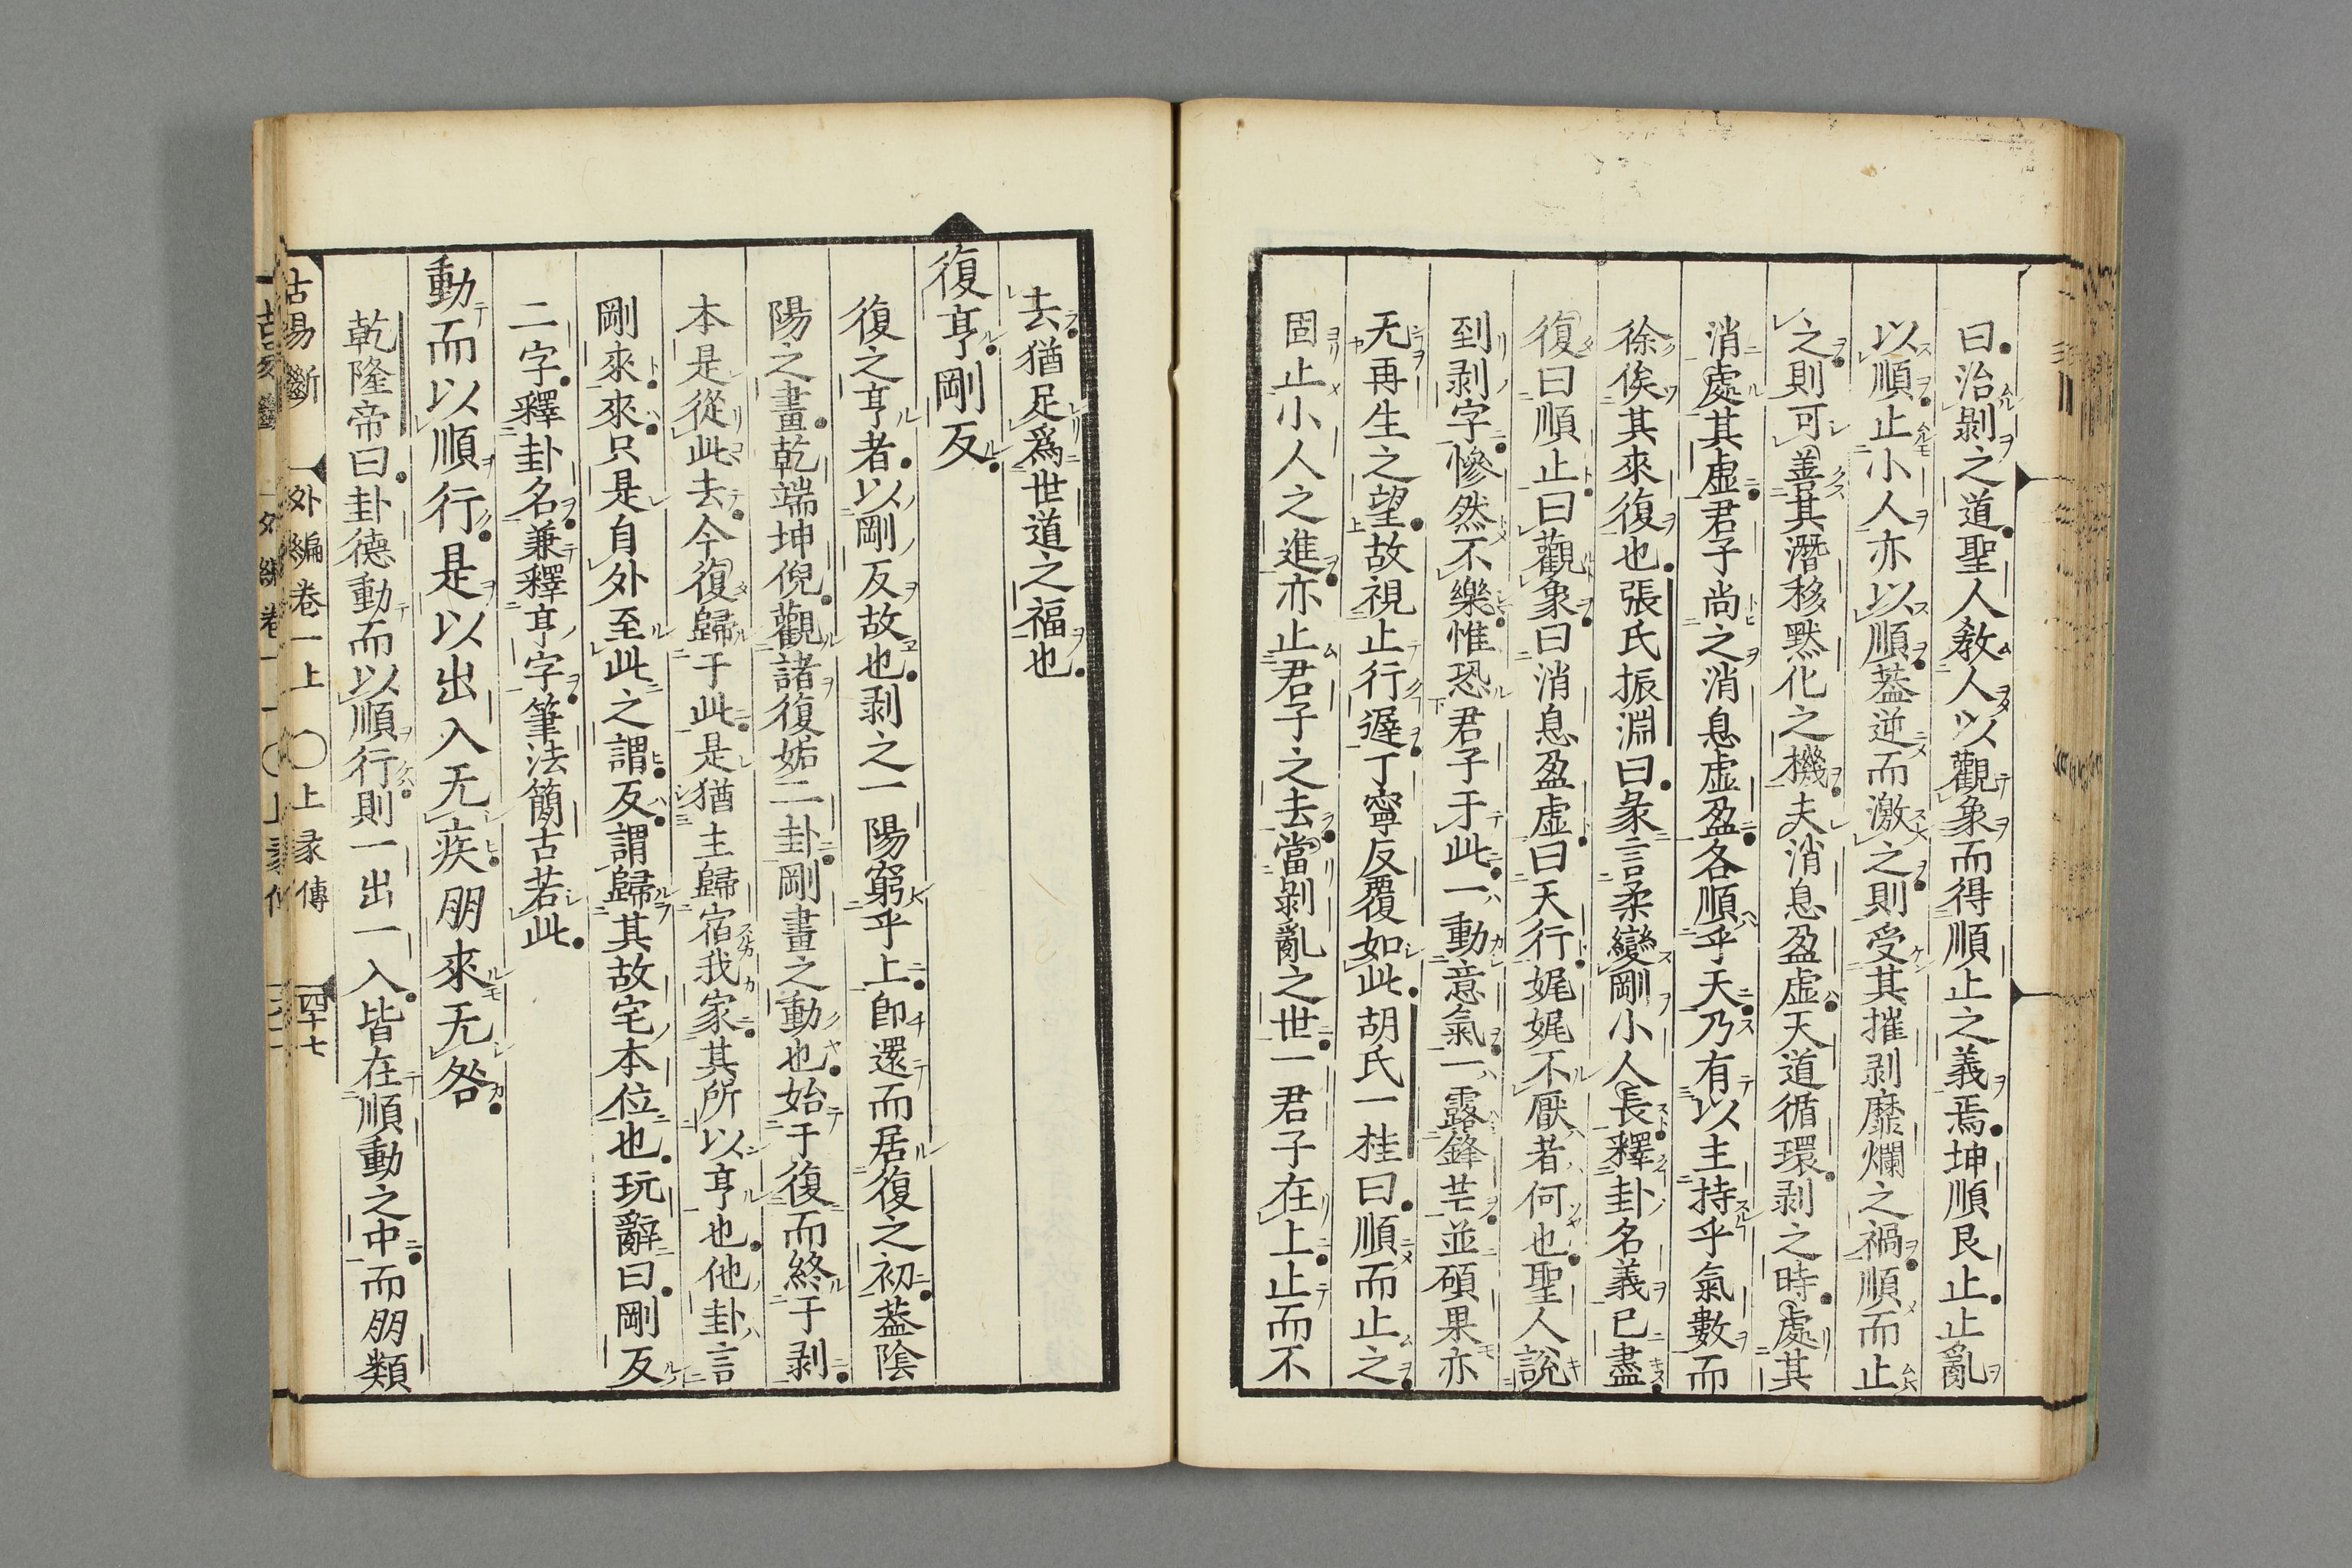 曰治剥之道聖人教人以觀象而得順止之義焉坤順艮止止亂
以順止小人亦以順蓋逆而激之則受其摧剥靡爛之禍順而止
之則可善其潛移默化之機夫消息盈虛天道循環剥之時處其
消處其虛君子尚之消息虛盈各順乎天乃有以主持乎氣數而
徐俟其來復也張氏振淵曰彖言柔變剛小人長釋卦名義已盡
復曰順止曰觀象曰消息盈虛曰天行娓娓不厭者何也聖人說
到剥字慘然不樂惟恐君子于此一動意氣一露鋒芒並碩果亦
无再生之望故視止行遲丁寧反覆如此胡氏一桂曰順而止之
固止小人之進亦止君子之去當剥亂之世一君子在上止而不
去猶足爲世道之福也
復亨剛反
復之亨者以剛反故也剥之一陽窮乎上卽還而居復之初蓋陰
陽之畫乾端坤倪觀諸復姤二卦剛畫之動也始于復而終于剥
本是從此去今復歸于此是猶主歸宿我家其所以亨也他卦言
剛來來只是自外至此之謂反謂歸其故宅本位也玩辭曰剛反
二字釋卦名兼釋亨字筆法簡古若此
動而以順行是以出入无疾朋來无咎
乾隆帝曰卦德動而以順行則一出一入皆在順動之中而朋類
古易斷 外編卷一上 ○上彖傳 四十七